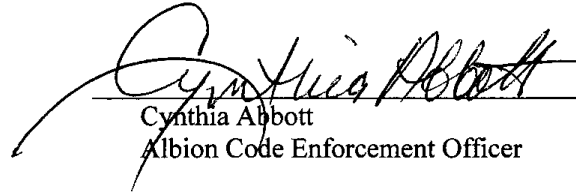 Cynthia Abbott
Cynthia Abbott
Albion Code Enforcement Officer